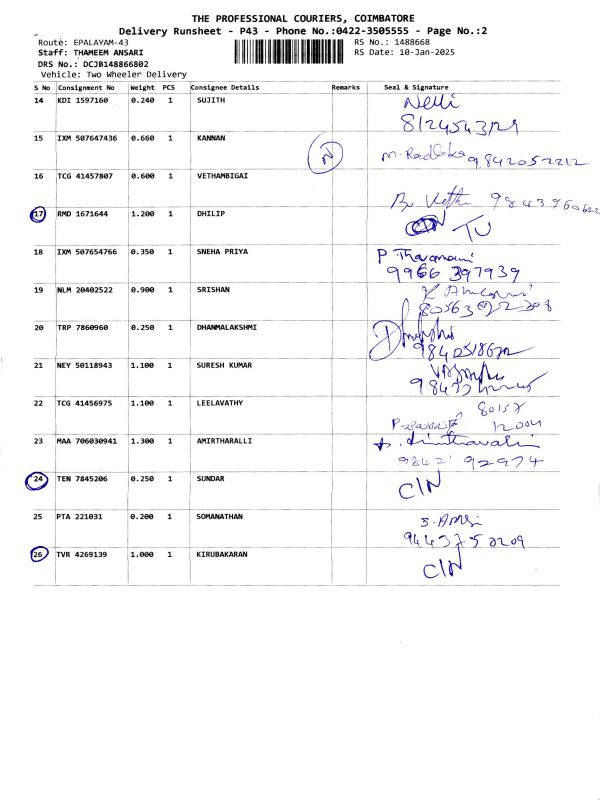 THE PROFESSIONAL COURIERS, COIMBATORE
Delivery Runsheet - P43 - Phone No.:0422-3505555 - Page No.:2
Route: EPALAYAM-43 RS No.: 1488668
Staff: THAMEEM ANSARI RS Date: 10-Jan-2025
DRS No.: DCJB148866802
Vehicle: Two Wheeler Delivery
S No Consignment No Weight PCS Consignee Details Remarks Seal & Signature
14 KDI 1597160 0.240 1 SUJITH Nelli
15 IXM 507647436 0.660 1 KANNAN N
9842052212
16 TCG 41457807 0.600 1 VETHAMBIGAI
17 RMD 1671644 1.200 1 DHILIP
18 IXM 507654766 0.350 1 SNEHA PRIYA
9966 397939
19 NLM 20402522 0.900 1 SRISHAN
20 TRP 7860960 0.250 1 DHANMALAKSHMI
21 NEY 50118943 1.100 1 SURESH KUMAR
22 TCG 41456975 1.100 1 LEELAVATHY
23 MAA 706030941 1.300 1 AMIRTHARALLI
98421 92974
24 TEN 7845206 0.250 1 SUNDAR C/N
25 PTA 221031 0.200 1 SOMANATHAN
26 TVR 4269139 1.000 1 KIRUBAKARAN C/N